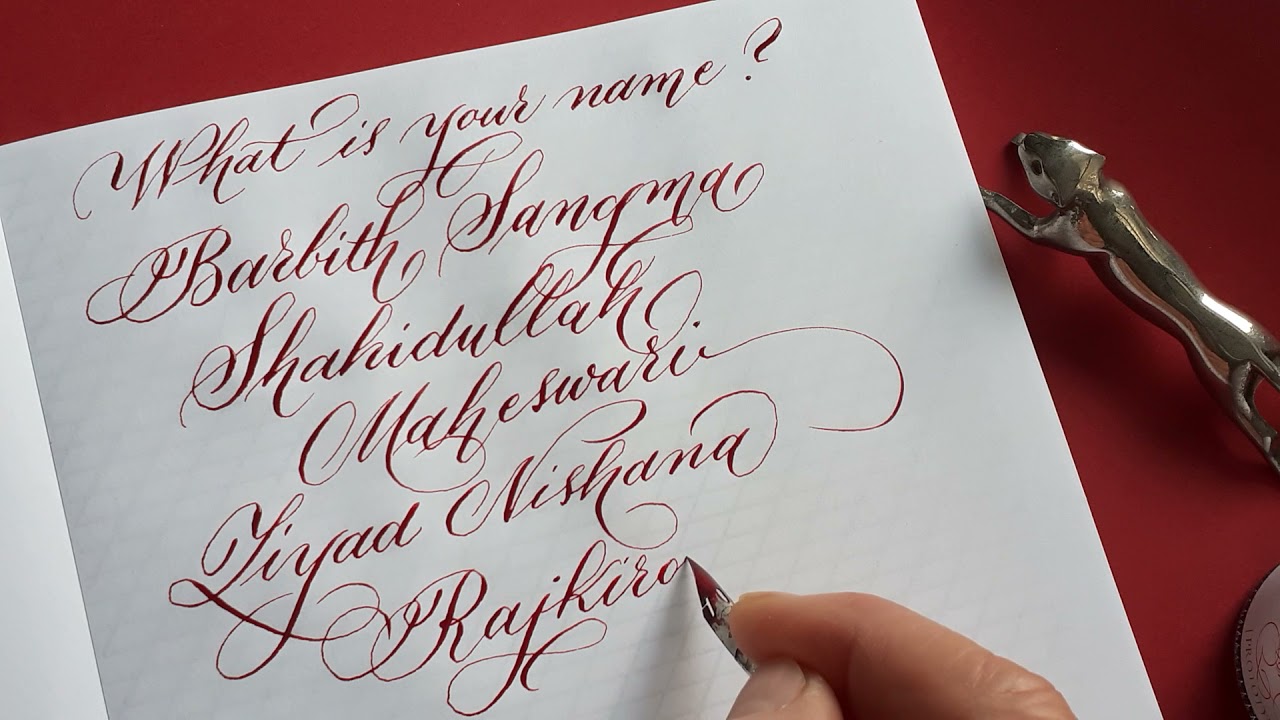 What is your name?
Barbith Sangma
Shahidullah
Maheswari
Ziyad Nishana
Rajkira